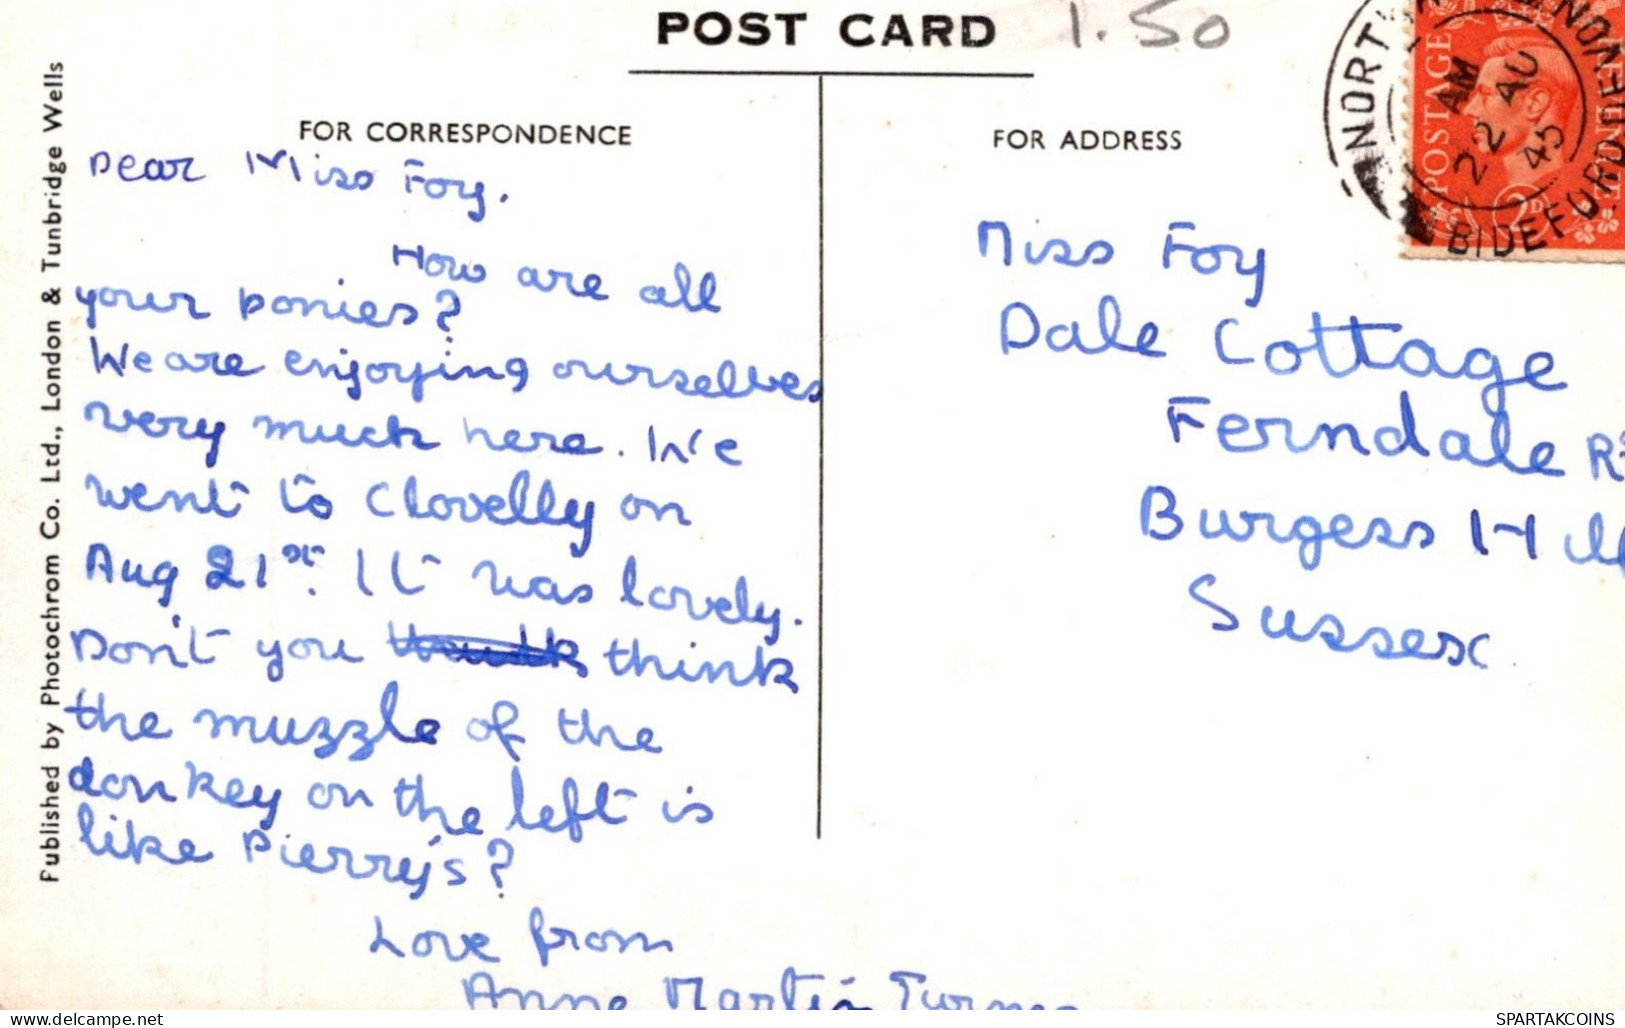 POST CARD 1.50
NORTH
BIDEFORD
AM
22 AU
45
POSTAGE
2D
FOR CORRESPONDENCE
Dear Miss Foy.
How are all
your ponies?
We are enjoying ourselves
very much here. We
went to Clovelly on
Aug 21st. It was lovely.
Don't you think
the muzzle of the
donkey on the left is
like Pierry's?
Love from
Anne Martin Turner
FOR ADDRESS
Miss Foy
Dale Cottage
Ferndale Rd
Burgess Hill
Sussex
Published by Photochrom Co. Ltd., London & Tunbridge Wells
delcampe.net
SPARTAKCOINS